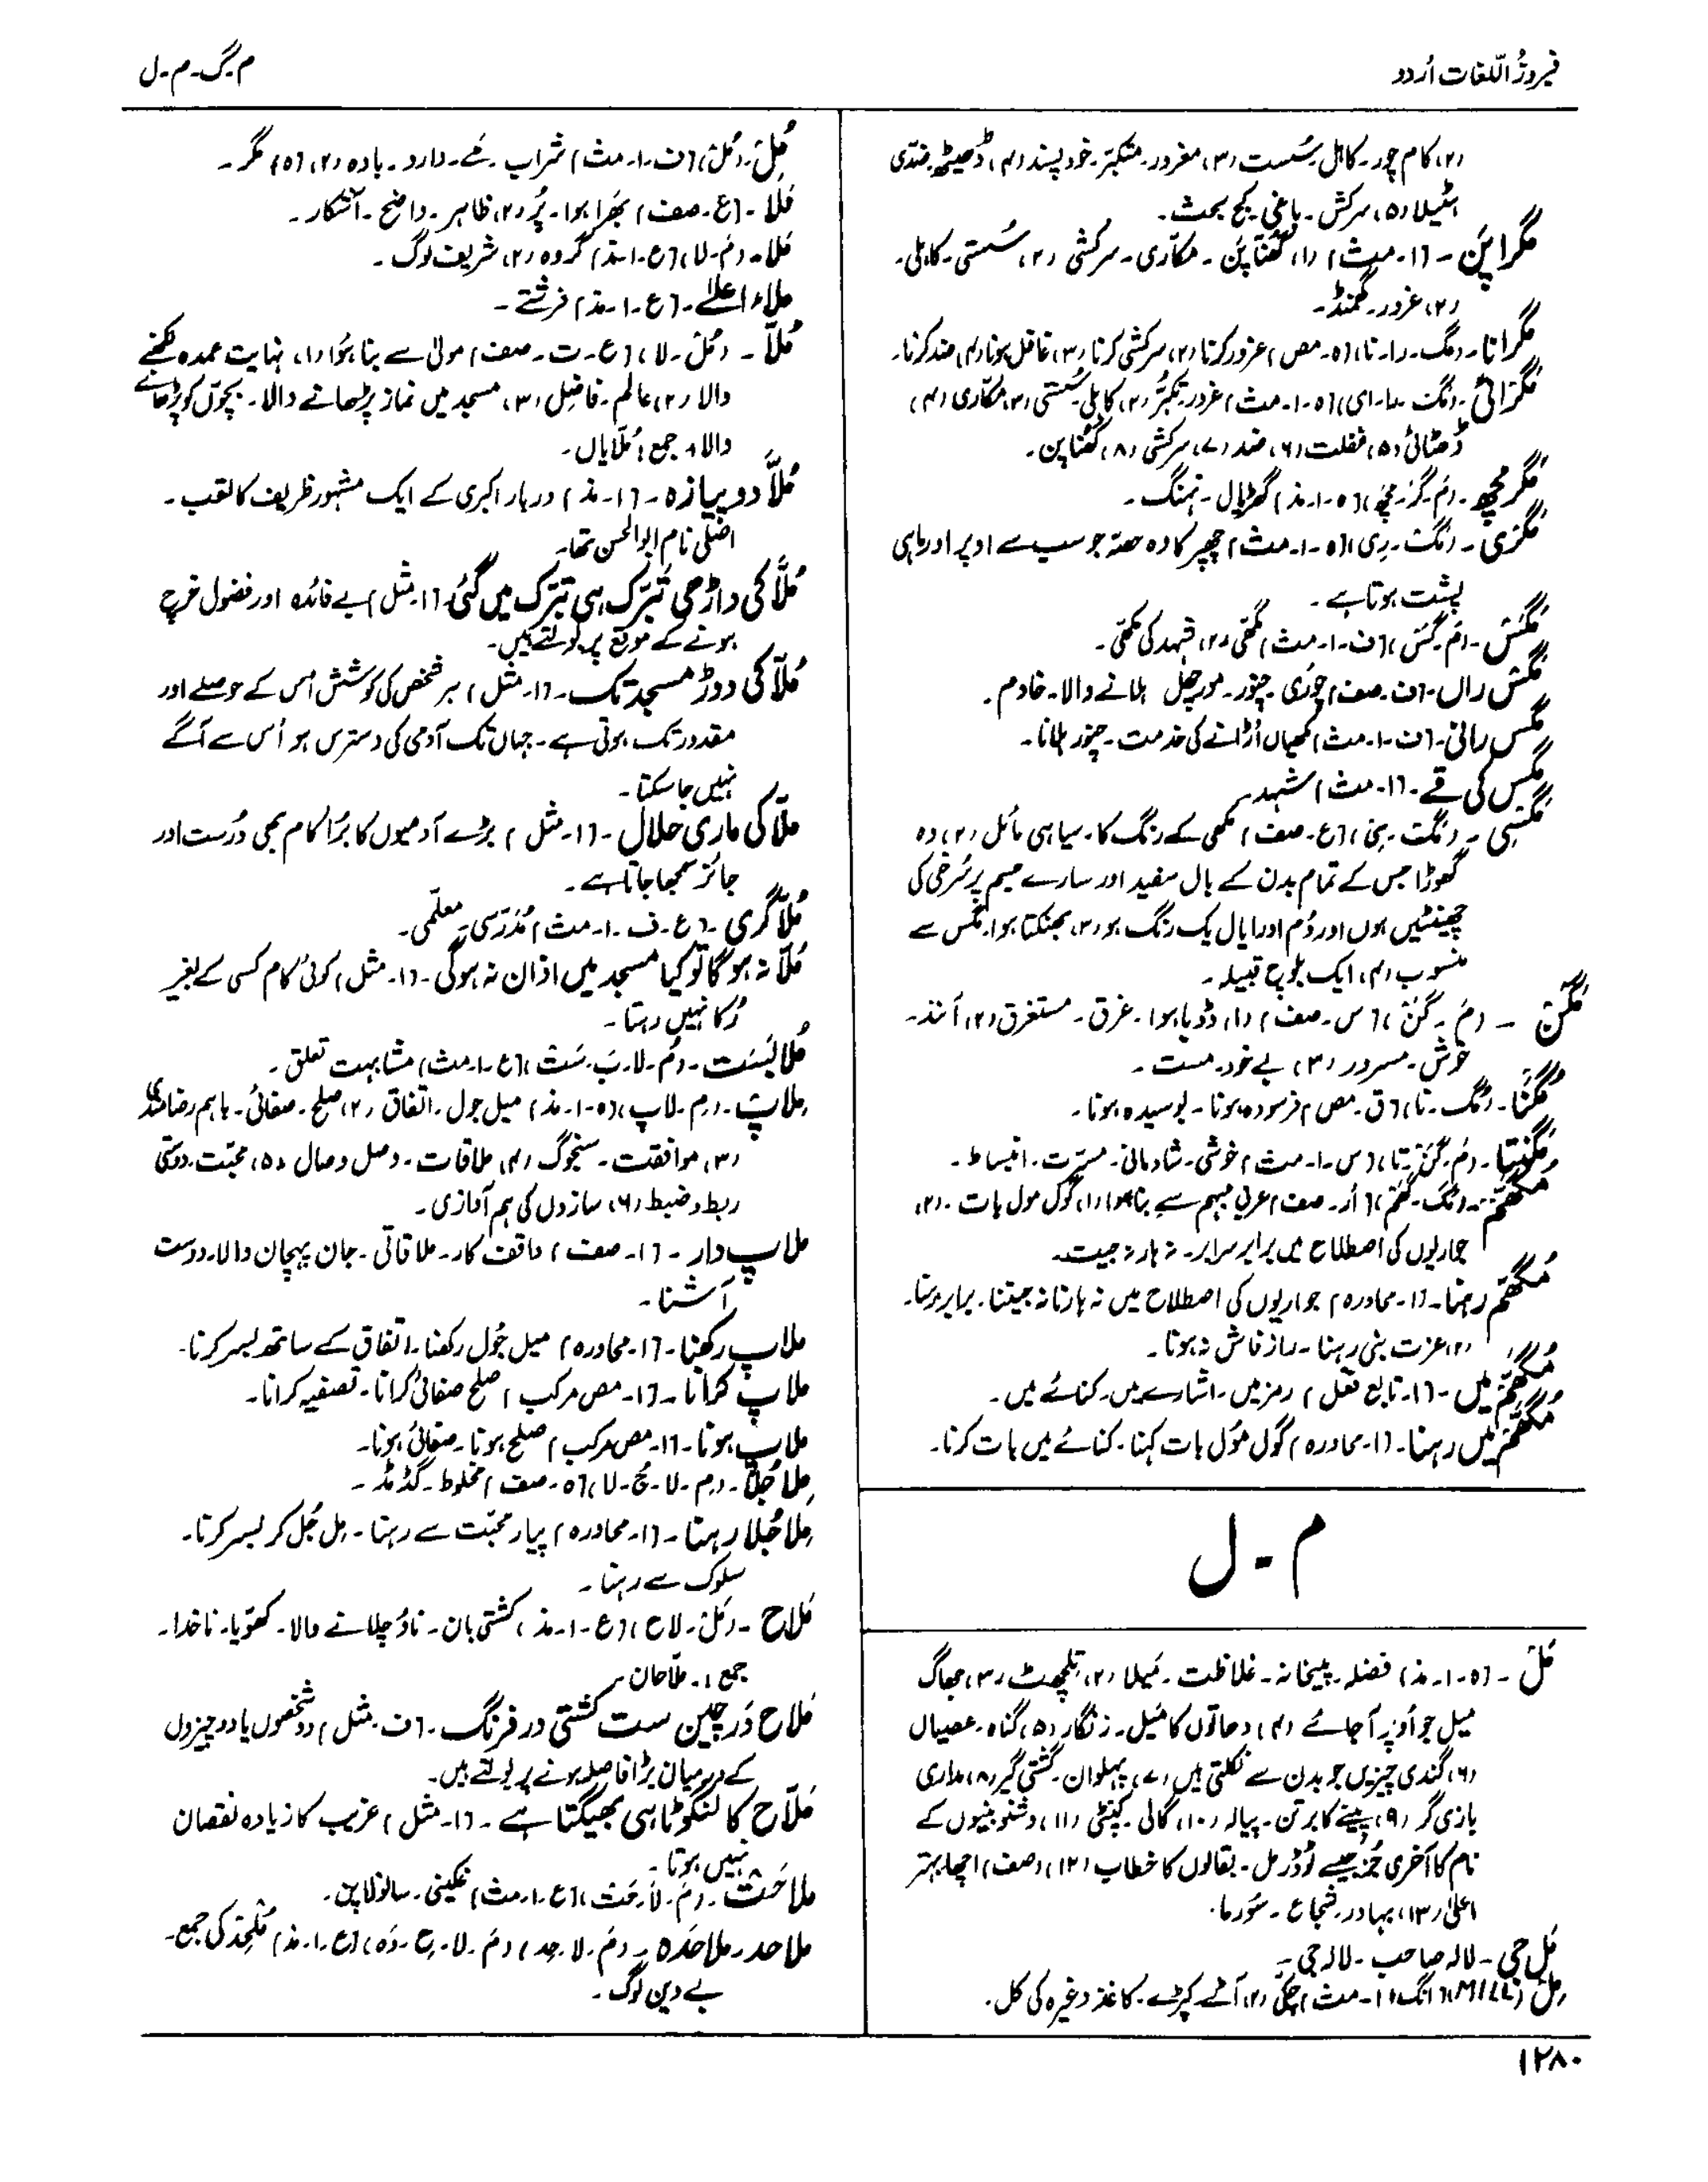 فیروزُ اللّغات اُردو
م۔گ۔م۔ل
(۲) کام چور۔ کاہل۔ سُست (۳) مغرور۔ متکبّر۔ خود پسند (۴) ڈھیٹھ۔ ضدّی
ہٹیلا (۵) سرکش۔ باغی۔ کج بحث۔
مگرا پَن۔ [ا۔ مث] (۱) گھُنّا پَن۔ مکّاری۔ سرکشی (۲) سُستی۔ کاہلی۔
(۲) غرور۔ گھمنڈ۔
مگرانا۔ (مگ۔ را۔ نا) [ہ۔ مص] غرور کرنا (۲) سرکشی کرنا (۳) غافل ہونا (۴) ضد کرنا۔
مگرائی۔ (مگ۔ را۔ ای) [ہ۔ ا۔ مث] غرور۔ تکبّر (۲) کاہلی۔ سُستی (۳) مکّاری (۴)
ڈھٹائی (۵) غفلت (۶) ضد (۷) سرکشی (۸) گھُنا پن۔
مَگر مچھ۔ (مَ۔ گَر۔ مَچھ) [ہ۔ ا۔ مذ] گھڑیال۔ نہنگ۔
مَگری۔ (مَگ۔ رِی) [ہ۔ ا۔ مث] چھپر کا وہ حصّہ جو سب سے اوپر اور ماہی
پشت ہوتا ہے۔
مَگس۔ (مَ۔ گَس) [ف۔ ا۔ مث] مکھّی (۲) شہد کی مکھّی۔
مگس راں۔ [ف۔ صف] چوری۔ چنور۔ مورچھل ہلانے والا۔ خادم۔
مگس رانی۔ [ف۔ ا۔ مث] مکھیاں اُڑانے کی خدمت۔ چنور ہلانا۔
مگس کی قے۔ [ا۔ مث] شہد۔
مَگسی۔ (مَگ۔ سِی) [ع۔ صف] مکھی کے رنگ کا۔ سیاہی مائل (۲) وہ
گھوڑا جس کے تمام بدن کے بال سفید اور سارے جسم پر سُرخی کی
چھینٹیں ہوں اور دُم اور ایال یک رنگ ہو (۳) بھنکتا ہوا۔ مگس سے
منسوب (۴) ایک بلوچ قبیلہ۔
مَگن۔ (مَ۔ گَن) [س۔ صف] (۱) ڈوبا ہوا۔ غرق۔ مستغرق (۲) آنند۔
خوش۔ مسرور (۳) بے خود۔ مست۔
مگنا۔ (مگ۔ نا) [ق۔ مص] فرسودہ ہونا۔ بوسیدہ ہونا۔
مَگنتا۔ (مَ۔ گَن۔ تا) [س۔ ا۔ مث] خوشی۔ شادمانی۔ مسرّت۔ انبساط۔
مگھم۔ (مگ۔ گھَم) [اُر۔ صف] عربی مبہم سے بنا ہوا (۱) گول مول بات۔ (۲)
جواریوں کی اصطلاح میں برابر سرابر۔ نہ ہار نہ جیت۔
مُگھم رہنا۔ [ا۔ محاورہ] جواریوں کی اصطلاح میں نہ ہارنا نہ جیتنا۔ برابر رہنا۔
(۲) عزت بنی رہنا۔ راز فاش نہ ہونا۔
مُگھم میں۔ [ا۔ تابع فعل] رمز میں۔ اشارے میں۔ کنائے میں۔
مُگھم میں رہنا۔ [ا۔ محاورہ] گول مُول بات کہنا۔ کنائے میں بات کرنا۔
م۔ ل
مَل۔ [ہ۔ ا۔ مذ] فضلہ۔ پیخانہ۔ غلاظت۔ مَیلا (۲) تلچھٹ (۳) جھاگ
میل جو اُوپر آ جائے (۴) دھاتوں کا مَیل۔ زنگار (۵) گناہ۔ عصیاں
(۶) گندی چیزیں جو بدن سے نکلتی ہیں (۷) پہلوان۔ کُشتی گیر (۸) مداری
بازی گر (۹) پینے کا برتن۔ پیالہ (۱۰) گال۔ کنپٹی (۱۱) وشنو بنیوں کے
نام کا آخری جُز جیسے ٹوڈر مل۔ بقالوں کا خطاب (۱۲) (صف) اچھا۔ بہتر
اعلیٰ (۱۳) بہادر۔ شجاع۔ سُورما۔
مَل جی۔ لالہ صاحب۔ لالہ جی۔
مِل (MILL) [انگ۔ ا۔ مث] چکّی (۲) آٹے کپڑے۔ کاغذ وغیرہ کی کل۔
مُل۔ (مُل) [ف۔ ا۔ مث] شراب۔ مَے۔ دارو۔ بادہ (۲) [ہ] مگر۔
مَلا۔ [ع۔ صف] بھَرا ہوا۔ پُر (۲) ظاہر۔ واضح۔ آشکار۔
مَلاء۔ (مَ۔ لا) [ع۔ ا۔ مذ] گروہ (۲) شریف لوگ۔
ملاءِ اعلےٰ۔ [ع۔ ا۔ مذ] فرشتے۔
مُلّا۔ (مُل۔ لا) [ع۔ ت۔ صف] مولیٰ سے بنا ہُوا (۱) نہایت عمدہ لکھنے
والا (۲) عالم۔ فاضِل (۳) مسجد میں نماز پڑھانے والا۔ بچّوں کو پڑھانے
والا۔ جمع؛ مُلّایاں۔
مُلّا دو پیازہ۔ [ا۔ مذ] دربار اکبری کے ایک مشہور ظریف کا لقب۔
اصلی نام ابوالحسن تھا۔
مُلّا کی داڑھی تبرّک ہی تبرّک میں گئی۔ [ا۔ مثل] بے فائدہ اور فضول خرچ
ہونے کے موقع پر بولتے ہیں۔
مُلّا کی دوڑ مسجد تک۔ [ا۔ مثل] ہر شخص کی کوشش اُس کے حوصلے اور
مقدور تک ہوتی ہے۔ جہاں تک آدمی کی دسترس ہو اُس سے آگے
نہیں جا سکتا۔
مُلّا کی ماری حلال۔ [ا۔ مثل] بڑے آدمیوں کا بُرا کام بھی دُرست اور
جائز سمجھا جاتا ہے۔
مُلّا گری۔ [ع۔ ف۔ ا۔ مث] مُدَرّسی۔ معلّمی۔
مُلّا نہ ہو گا تو کیا مسجد میں اذان نہ ہوگی۔ [ا۔ مثل] کوئی کام کسی کے بغیر
رُکا نہیں رہتا۔
مُلابَسَت۔ (مُ۔ لا۔ بَ۔ سَت) [ع۔ ا۔ مث] مشابہت تعلق۔
مِلاپ۔ (مِ۔ لاپ) [ہ۔ ا۔ مذ] میل جول۔ اتفاق (۲) صلح۔ صفائی۔ باہم رضامندی
(۳) موافقت۔ سنجوگ (۴) ملاقات۔ وصل وصال (۵) محبّت۔ دوستی
ربط و ضبط (۶) سازوں کی ہم آوازی۔
ملاپ دار۔ [ا۔ صف] واقف کار۔ ملاقاتی۔ جان پہچان والا۔ دوست
آشنا۔
ملاپ رکھنا۔ [ا۔ محاورہ] میل جُول رکھنا۔ اتفاق کے ساتھ بسر کرنا۔
ملاپ کرانا۔ [ا۔ مص مرکب] صلح صفائی کرانا۔ تصفیہ کرانا۔
ملاپ ہونا۔ [ا۔ مص مرکب] صلح ہونا۔ صفائی ہونا۔
مِلا جُلا۔ (مِ۔ لا۔ جُ۔ لا) [ہ۔ صف] مخلوط۔ گڈ مڈ۔
مِلا جُلا رہنا۔ [ا۔ محاورہ] پیار محبّت سے رہنا۔ مِل جُل کر بسر کرنا۔
سلوک سے رہنا۔
مَلاح۔ (مَل۔ لاح) [ع۔ ا۔ مذ] کشتی بان۔ ناؤ چلانے والا۔ کھویّا۔ ناخدا۔
جمع؛ ملّاحان
مَلاح دَر چین ست کشتی در فرنگ۔ [ف۔ مثل] دو شخصوں یا دو چیزوں
کے درمیان بڑا فاصلہ ہونے پر بولتے ہیں۔
مَلّاح کا لنگوٹا ہی بھیگتا ہے۔ [ا۔ مثل] غریب کا زیادہ نقصان
نہیں ہوتا۔
ملاحَت۔ (مَ۔ لا۔ حَت) [ع۔ ا۔ مث] نمکینی۔ سانولا پن۔
ملاحد۔ ملاحدہ۔ (مَ۔ لا۔ حِد) (مَ۔ لا۔ حِ۔ دَہ) [ع۔ ا۔ مذ] مُلحِد کی جمع۔
بے دین لوگ۔
۱۲۸۰